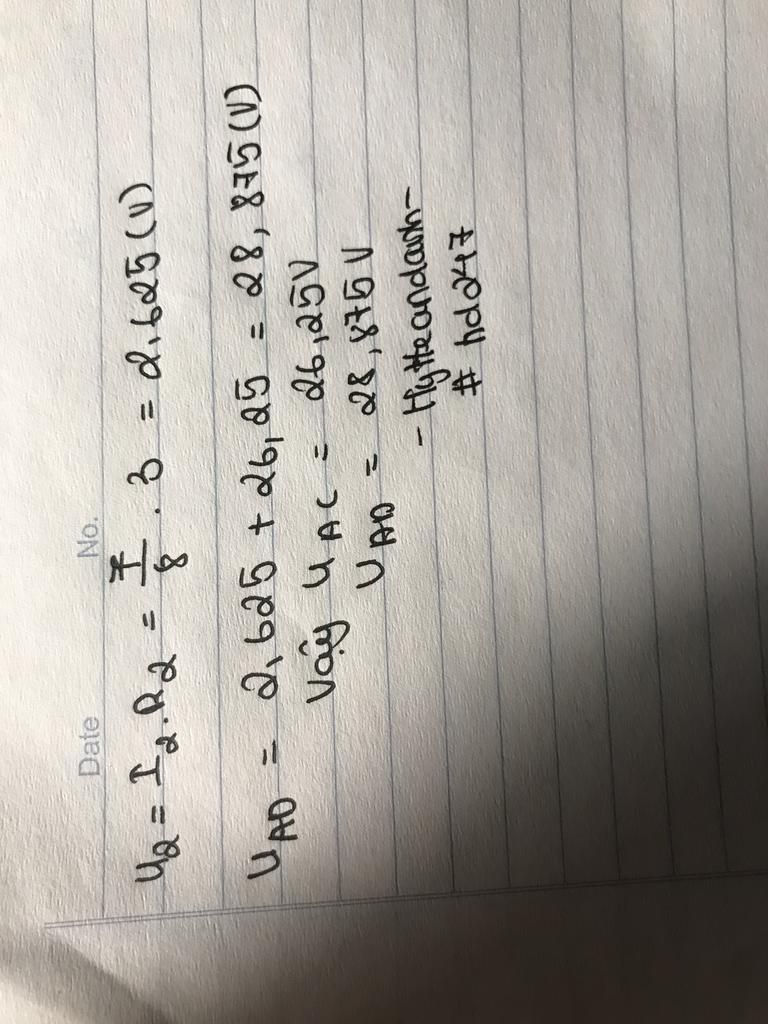 Date No.
U₂ = I₂.R₂ = 7/8 . 3 = 2,625 (V)
U_AD = 2,625 + 26,25 = 28,875 (V)
Vậy U_AC = 26,25V
U_AD = 28,875V
# hd247